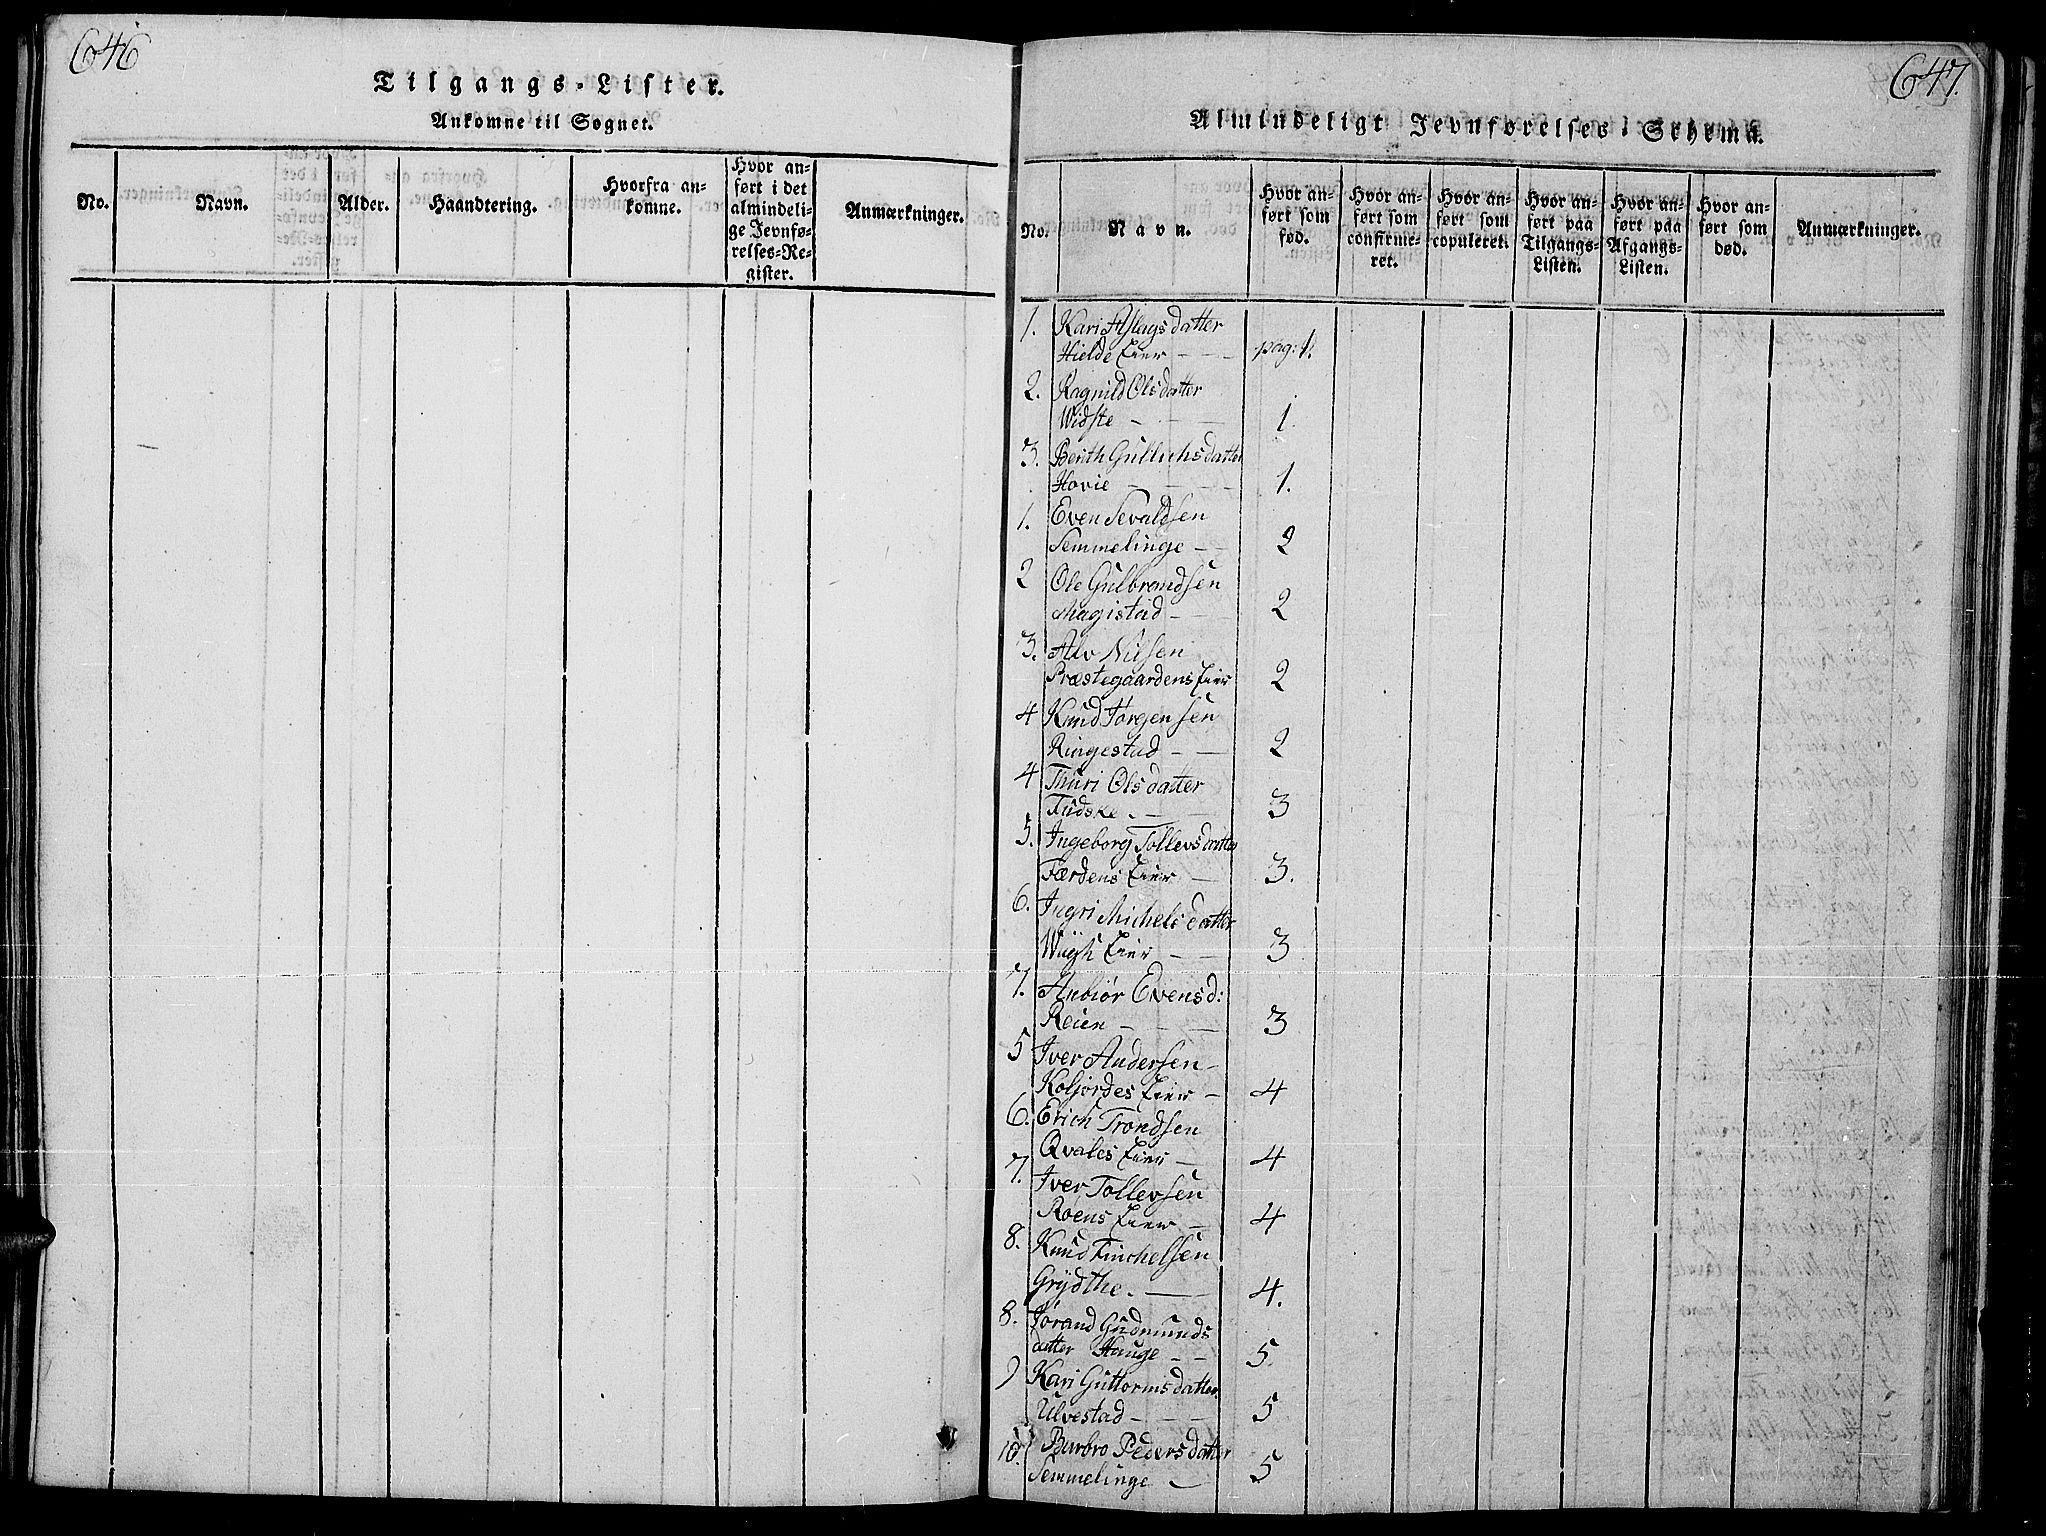 646
Tilgangs-Lister.
Ankomne til Sognet.
No.
Navn.
Alder.
Haandtering.
Hvorfra an-
komne.
Hvor an-
ført i det
almindeli-
ge Jevnfø-
relses-Re-
gister.
Anmærkninger.
647.
Almindeligt Jevnførelses-Schema.
No.
Navn.
Hvor an-
ført som
fød.
Hvor an-
ført som
confirme-
ret.
Hvor an-
ført som
copuleret.
Hvor an-
ført paa
Tilgangs-
Listen.
Hvor an-
ført paa
Afgangs-
Listen.
Hvor an-
ført som
død.
Anmærkninger.
1. Kari Aslags datter
Hielde Eier - - - pag: 1.
2. Ragnild Olsdatter
Widste - - - 1.
3. Berith Gullichsdatter
Hovie - - - 1.
1. Even Sevaldsen
Semmelinge - - 2
2 Ole Gulbrandsen
Magistad - - 2
3. Alv Nilsen
Præstegaardens Eier 2
4 Knud Jørgensen
Ringestad - - 2
4 Thuri Olsdatter
3
5. Ingeborg Tollevsdatter
Færdens Eier - 3.
6. Ingri Michelsdatter
Eier - - 3
7. Anbiør Evensd:
Reien - - - 3
5 Iver Andersen
Eier - 4
6. Erich Trondsen
Qvales Eier - 4
7. Iver Tollevsen
Roens Eier - 4
8. Knud Finchelsen
Grydthe. - 4.
8. Jørand Gudmunds
datter Hauge - - 5.
9 Kari Guttormsdatter
Ulvestad - - - 5
10. Barbro Pedersdatter
Semmelinge - 5